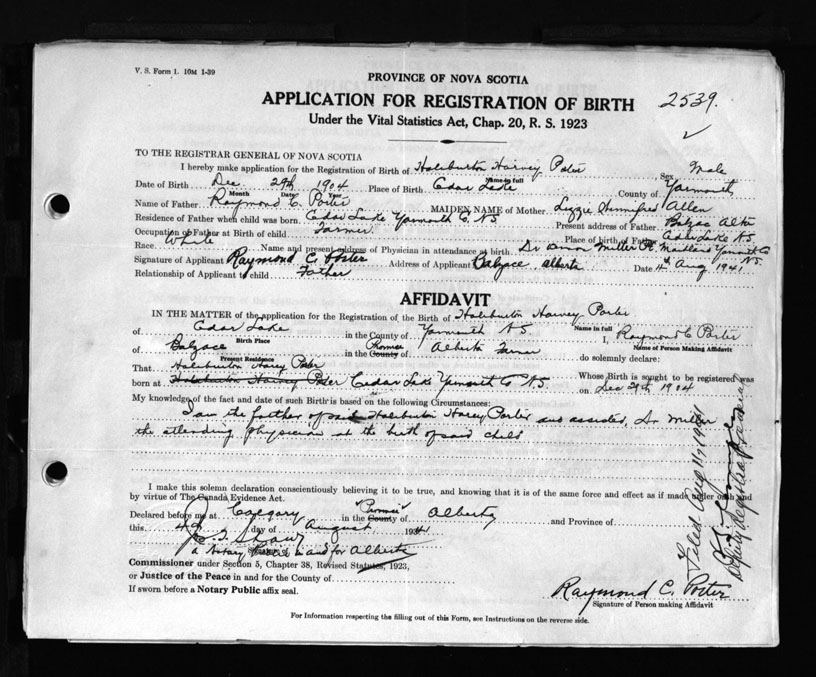 V. S. Form 1. 10M 1-39
PROVINCE OF NOVA SCOTIA
APPLICATION FOR REGISTRATION OF BIRTH 2539.
Under the Vital Statistics Act, Chap. 20, R. S. 1923
TO THE REGISTRAR GENERAL OF NOVA SCOTIA
I hereby make application for the Registration of Birth of Haleburton Harvey Porter Sex Male
Name in full
Date of Birth Dec 29th 1904 Place of Birth Cedar Lake County of Yarmouth
Month Date Year
Name of Father Raymond C. Porter MAIDEN NAME of Mother Lizzie Allen
Residence of Father when child was born. Cedar Lake Yarmouth Co. N.S. Present address of Father Balzac Alta
Occupation of Father at Birth of child Farmer Place of birth of Father Cedar Lake N.S.
Race. White Name and present address of Physician in attendance at birth. Dr Miller Yarmouth Co N.S.
Signature of Applicant Raymond C. Porter Address of Applicant Balzace Alberta Date 4th Aug 1941
Relationship of Applicant to child Father
AFFIDAVIT
IN THE MATTER of the application for the Registration of the Birth of Haleburton Harvey Porter
Name in full
of Cedar Lake in the County of Yarmouth N.S. I, Raymond C Porter
Birth Place Name of Person Making Affidavit
of Balzace in the County of Province Alberta Farmer do solemnly declare:
Present Residence
That Haleburton Harvey Porter Whose Birth is sought to be registered was
born at Haleburton Harvey Porter Cedar Lake Yarmouth Co N.S. on Dec 29th 1904
My knowledge of the fact and date of such Birth is based on the following Circumstances:
I am the father of said Haleburton Harvey Porter and assisted, Dr. Miller
the attending physician at the birth of said child
I make this solemn declaration conscientiously believing it to be true, and knowing that it is of the same force and effect as if made under oath and
by virtue of The Canada Evidence Act.
Declared before me at Calgary in the County of Province Alberta and Province of
this 4th day of August 1941
a Notary Public in and for Alberta
Commissioner under Section 5, Chapter 38, Revised Statutes, 1923,
or Justice of the Peace in and for the County of
If sworn before a Notary Public affix seal.
Raymond C. Porter
Signature of Person making Affidavit
For Information respecting the filling out of this Form, see Instructions on the reverse side.
Filed Aug 11, 1941
Deputy Registrar General